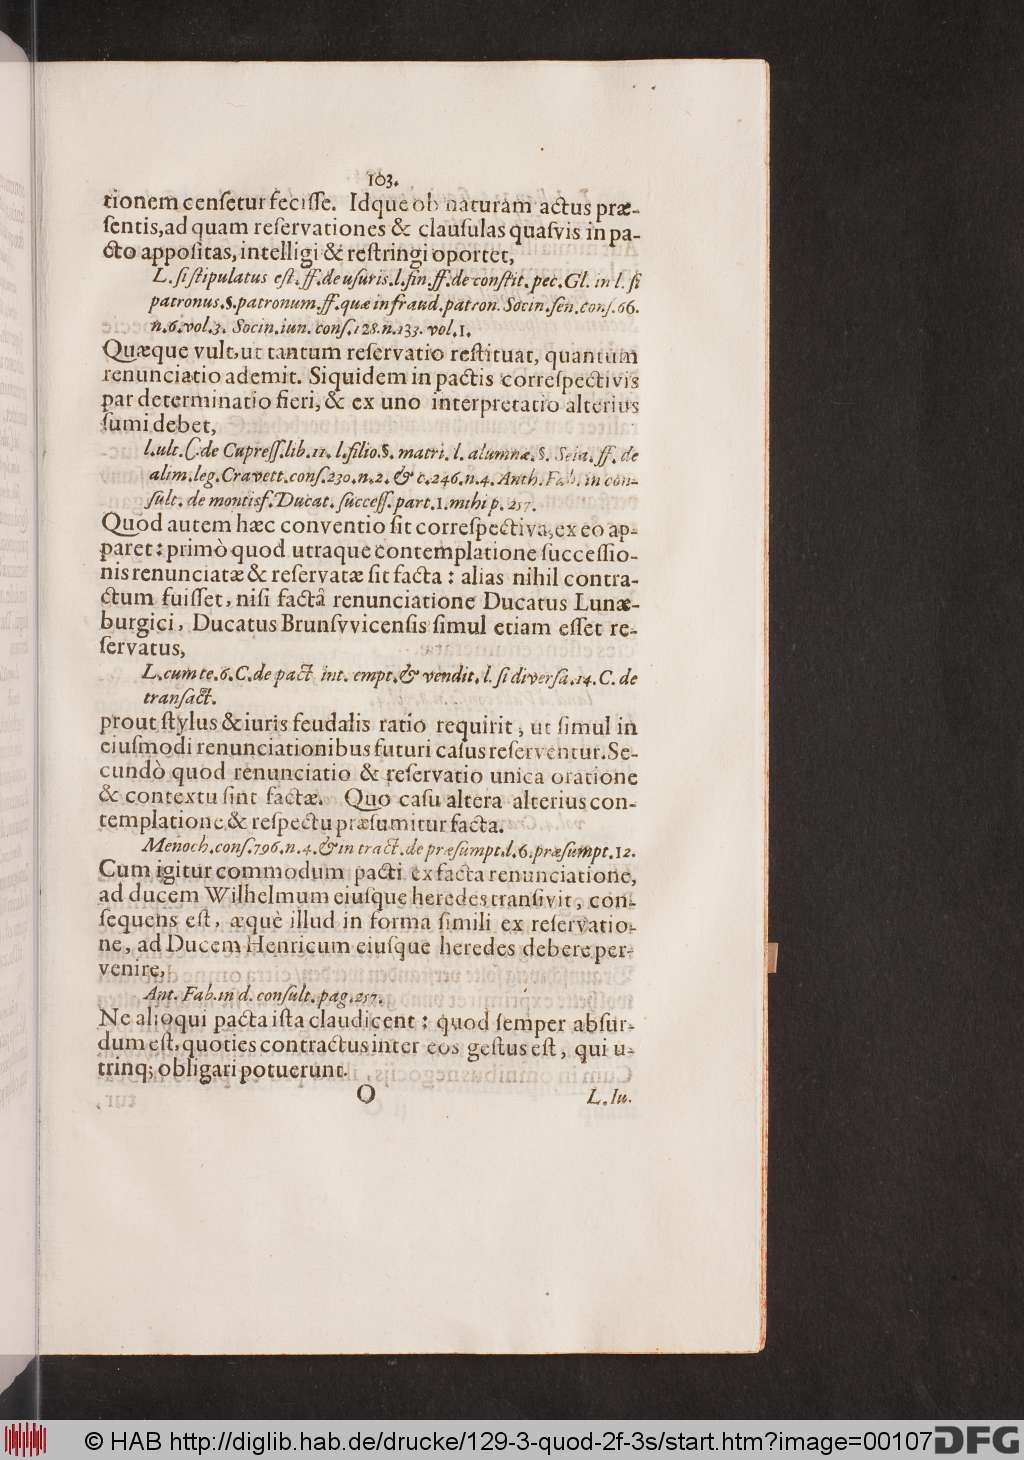 103.
tionem censetur fecisse. Idque ob naturam actus præ-
sentis, ad quam reservationes & clausulas quasvis in pa-
cto appositas, intelligi & restringi oportet,
L. si stipulatus est. ff. de usuris. l. fin. ff. de constit. pec. Gl. in l. si
patronus. §. patronum. ff. quæ in fraud. patron. Socin. sen. cons. 66.
n. 6. vol. 3. Socin. iun. cons. 128. n. 133. vol. 1.
Quæque vult, ut tantum reservatio restituat, quantum
renunciatio ademit. Siquidem in pactis correspectivis
par determinatio fieri, & ex uno interpretatio alterius
sumi debet,
l. ult. C. de Cupress. lib. 11. l. filio. §. matri. l. alumnæ. §. Seia. ff. de
alim. leg. Cravett. cons. 230. n. 2. & c. 246. n. 4. Anth. Fab. in con-
sult. de montisf. Ducat. success. part. 1. mihi p. 257.
Quod autem hæc conventio sit correspectiva, ex eo ap-
paret: primò quod utraque contemplatione successio-
nis renunciatæ & reservatæ sit facta: alias nihil contra-
ctum fuisset, nisi factâ renunciatione Ducatus Lunæ-
burgici, Ducatus Brunsvvicensis simul etiam esset re-
servatus,
L. cum te. 6. C. de pact. int. empt. & vendit. l. si diversa. 14. C. de
transact.
prout stylus & iuris feudalis ratio requirit, ut simul in
eiusmodi renunciationibus futuri casus reserventur. Se-
cundò quod renunciatio & reservatio unica oratione
& contextu sint factæ. Quo casu altera alterius con-
templatione & respectu præsumitur facta.
Menoch. cons. 796. n. 4. & in tract. de præsumpt. l. 6. præsumpt. 12.
Cum igitur commodum pacti ex facta renunciatione,
ad ducem Wilhelmum eiusque heredes transivit, con-
sequens est, æquè illud in forma simili ex reservatio-
ne, ad Ducem Henricum eiusque heredes debere per-
venire,
Ant. Fab. in d. consult. pag. 257.
Ne alioqui pacta ista claudicent: quod semper absur-
dum est, quoties contractus inter eos gestus est, qui u-
trinq; obligari potuerunt.
O L. Iu.
© HAB http://diglib.hab.de/drucke/129-3-quod-2f-3s/start.htm?image=00107 DFG